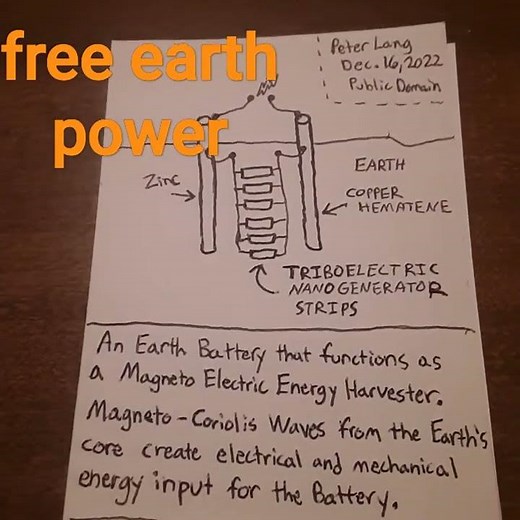 free earth
power
Peter Lang
Dec. 16, 2022
Public Domain
Zinc
EARTH
COPPER
HEMATENE
TRIBOELECTRIC
NANOGENERATOR
STRIPS
An Earth Battery that functions as
a Magneto Electric Energy Harvester.
Magneto-Coriolis Waves from the Earth's
core create electrical and mechanical
energy input for the Battery.